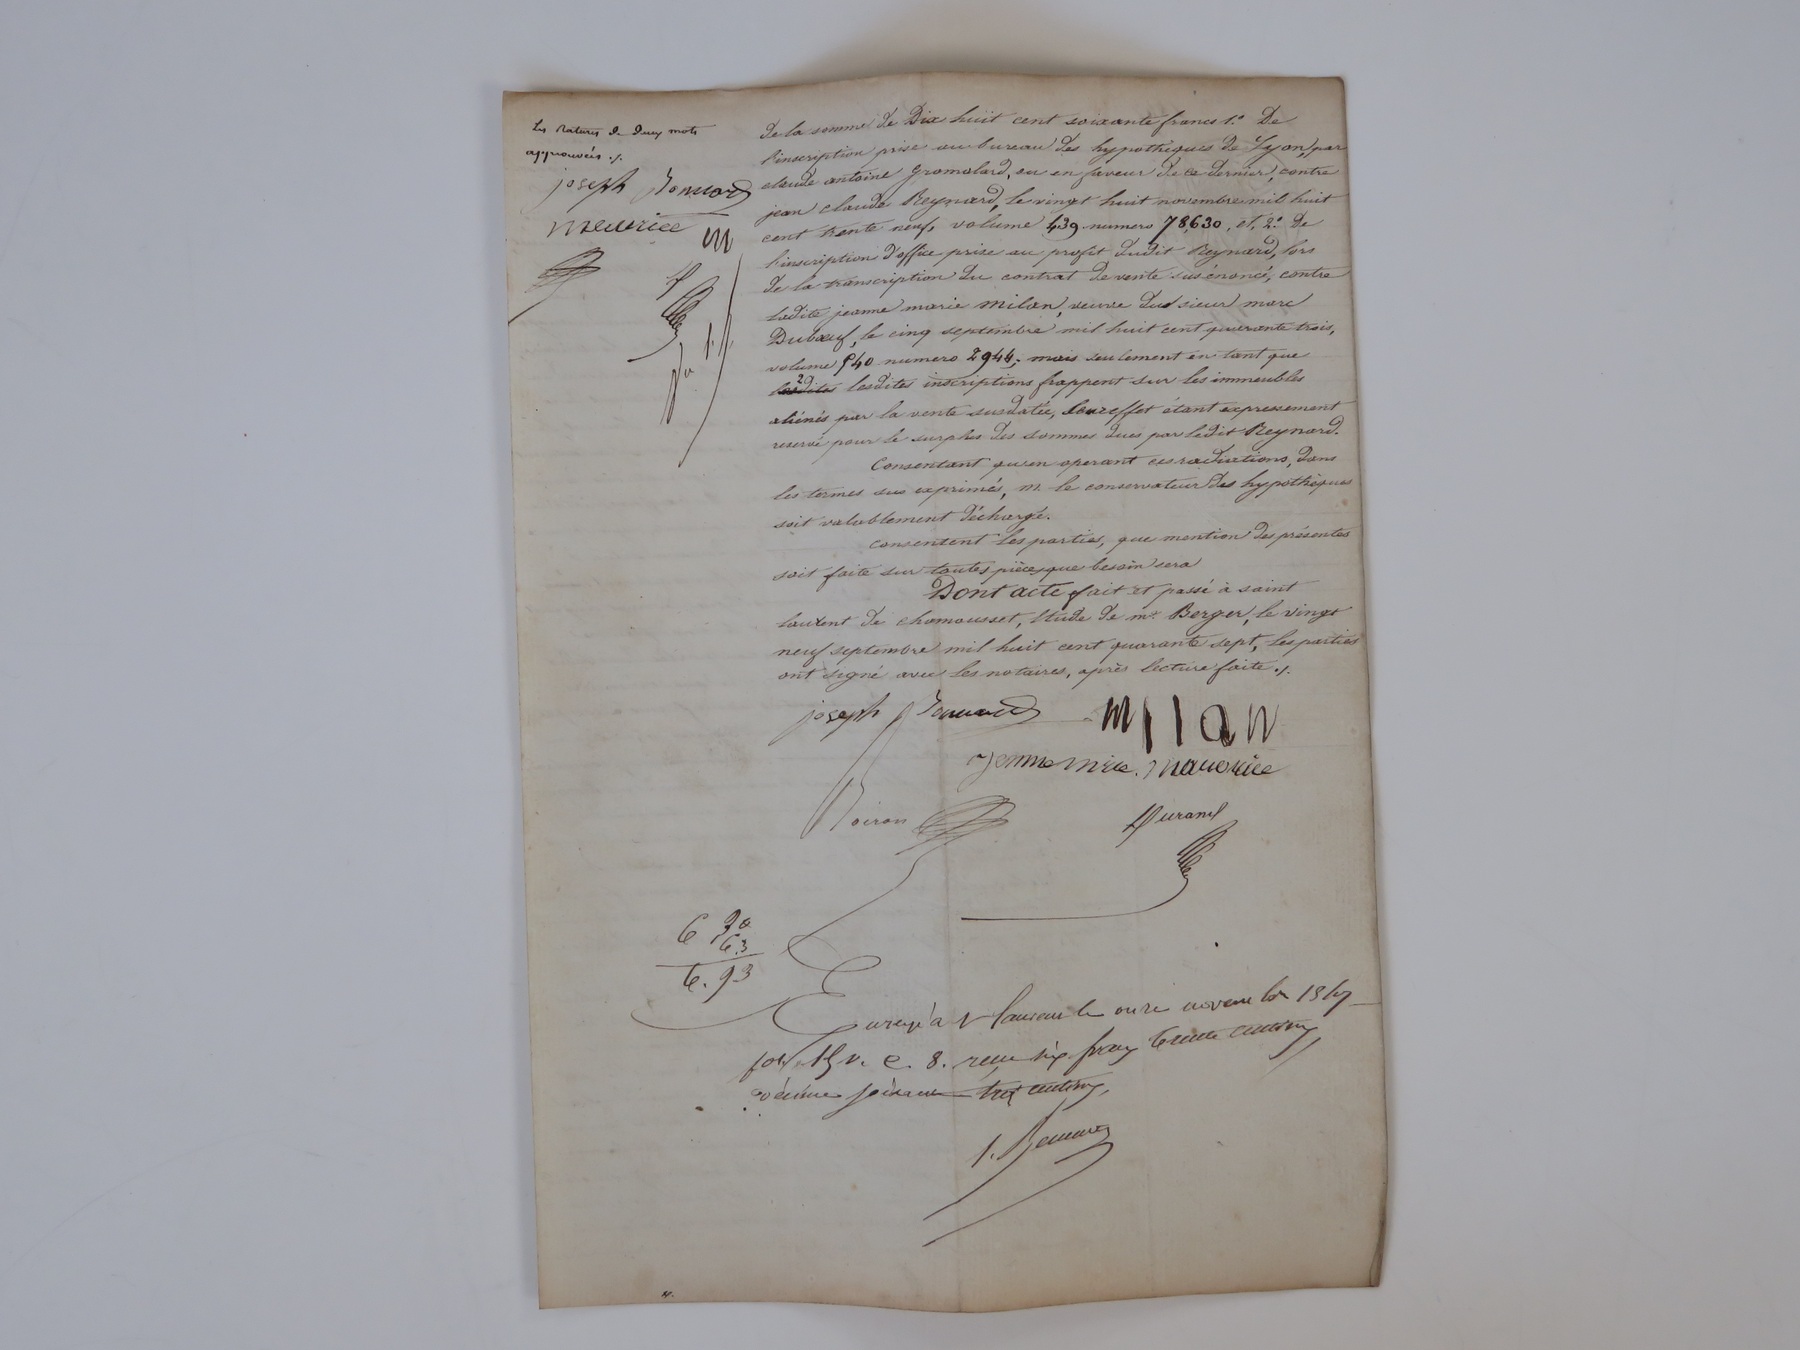 Les ratures de deux mots
approuvées ./.
joseph
meurice
m
de la somme de Dix huit cent soixante francs 1.° De
l'inscription prise au bureau des hypotheques de Lyon, par
claude antoine Gromolard, ou en faveur de ce dernier, contre
jean claude Reynard, le vingt huit novembre mil huit
cent trente neuf, volume 439 numero 78,630, et, 2.° De
l'inscription d'office prise au profit dudit Reynard, lors
de la transcription du contrat de vente susénoncé, contre
ladite jeanne marie milan, veuve du sieur marc
Duboeuf, le cinq septembre mil huit cent quarante trois,
volume 540 numero 2944; mais seulement en tant que
lesdites lesdites inscriptions frappent sur les immeubles
aliénés par la vente susdatée, leur effet étant expressement
reservé pour le surplus des sommes dues par ledit Reynard.
Consentant qu'en operant ces radiations, dans
les termes sus exprimés, m. le conservateur des hypothèques
soit valablement déchargé.
Consentent les parties, que mention des présentes
soit faite sur toutes pièces que besoin sera
Dont acte fait et passé à saint
laurent de chamousset, Etude de me. Berger, le vingt
neuf septembre mil huit cent quarante sept, les parties
ont signé avec les notaires, après lecture faite ./.
joseph
milan
meurice
Boiron
Durand
6 30
63
6.93
à St Laurent le onze novembre 1847
fol. 15 v. c. 8. reçu six francs trente centimes
décime soixante trois centimes,